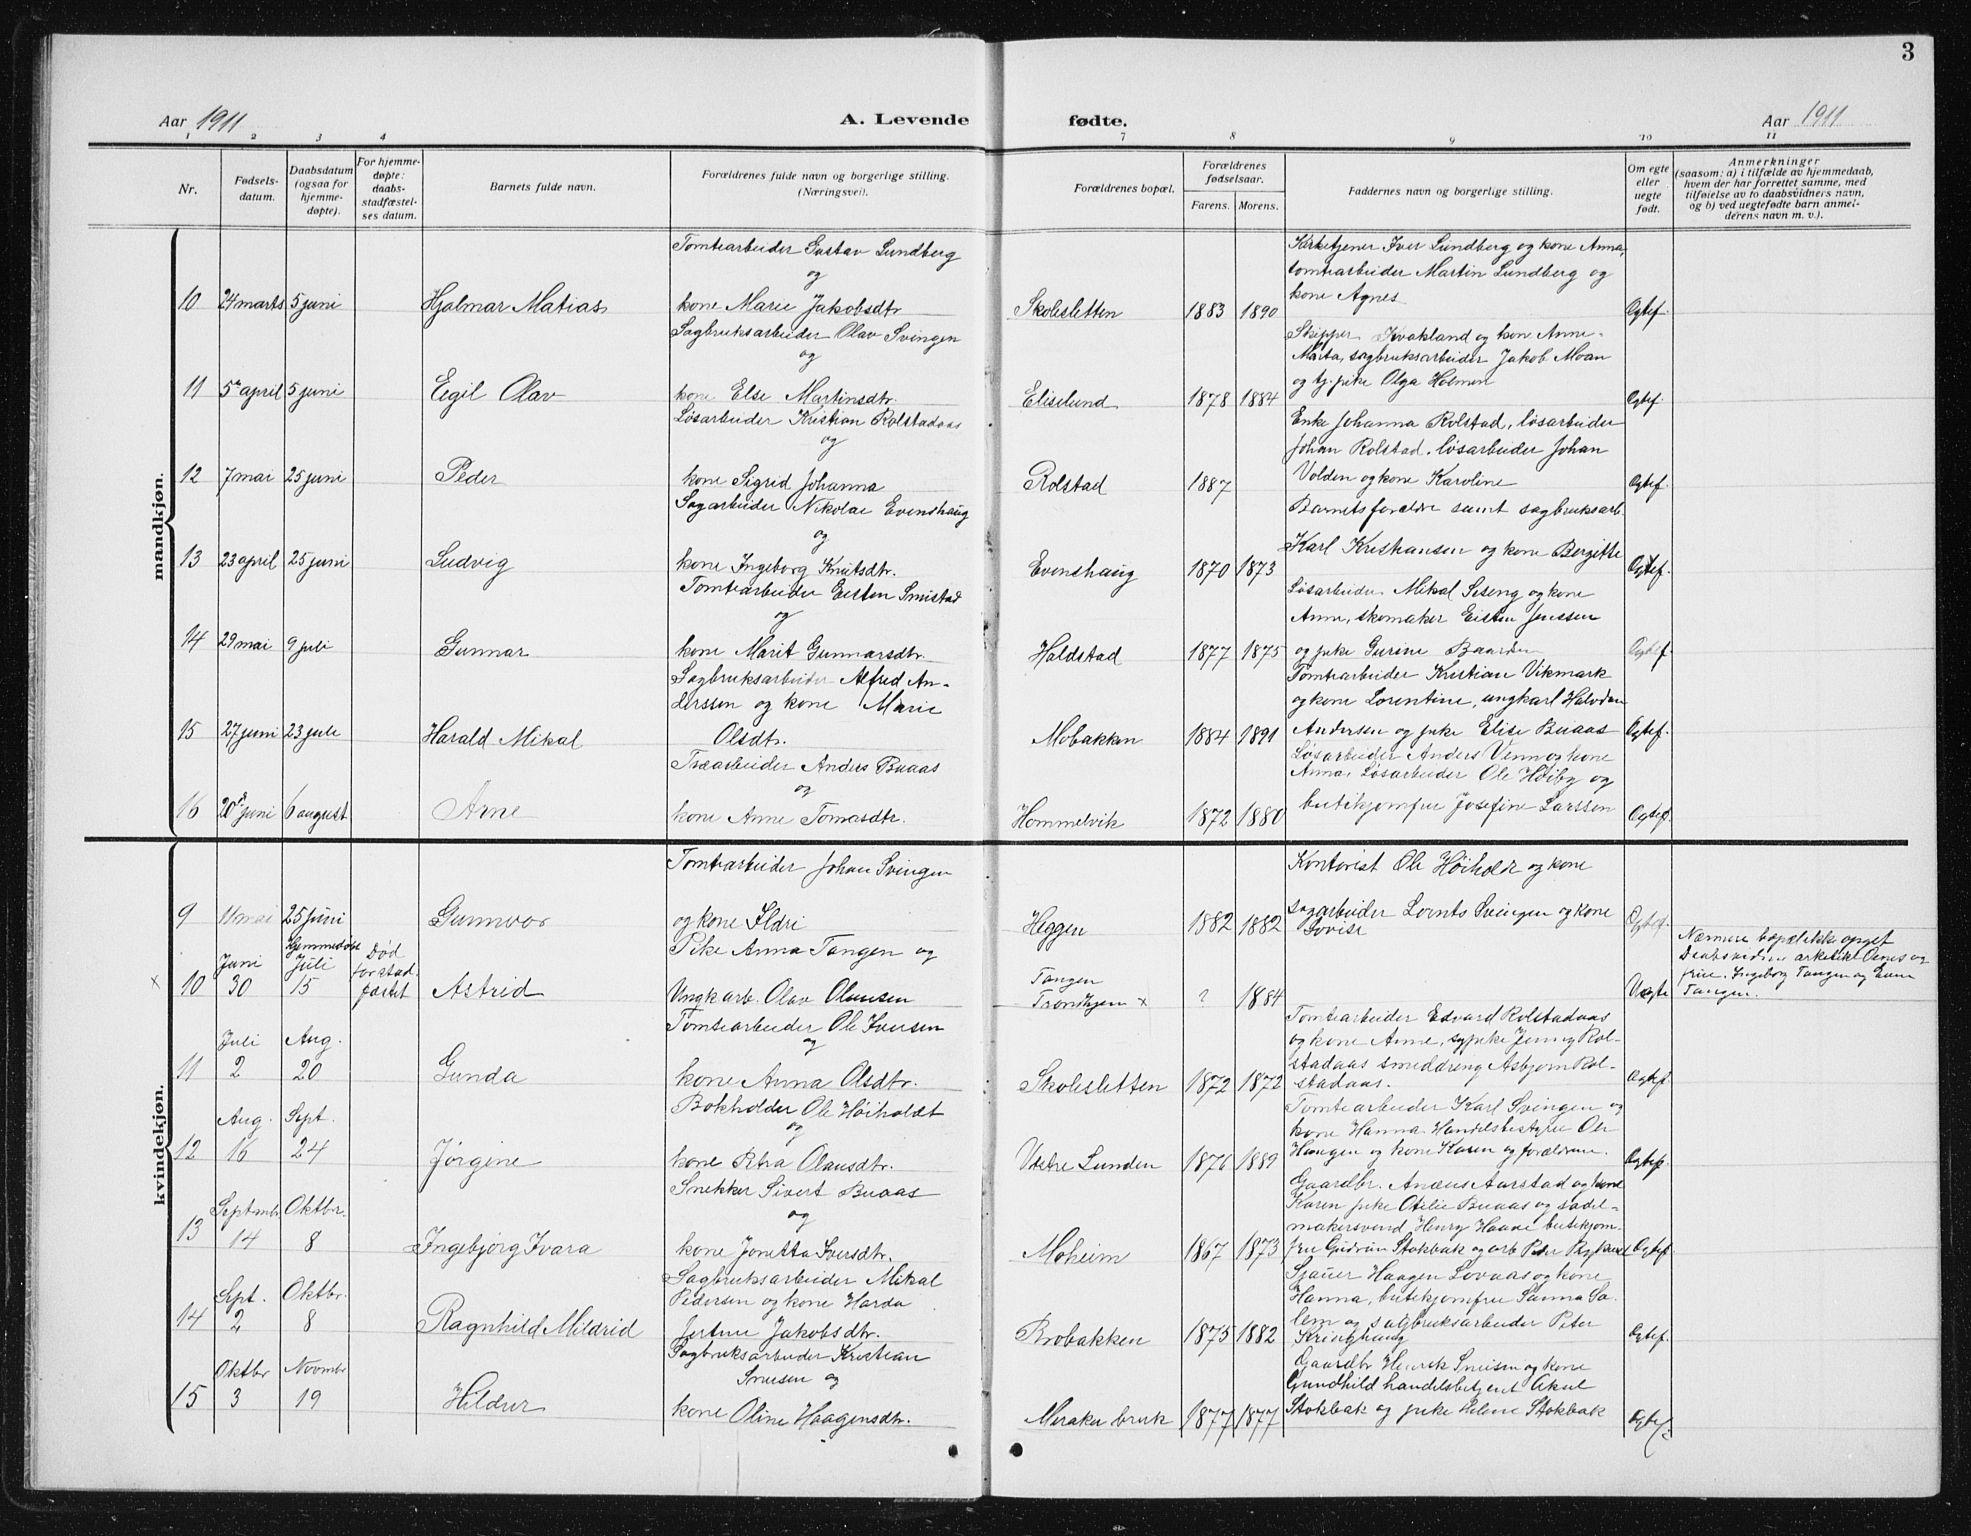 3
Aar 1911
A. Levende fødte.
Aar 1911
1 2 3 4 7 8 9 10 11
Nr.
Fødsels-
datum.
Daabsdatum
(ogsaa for
hjemme-
døpte).
For hjemme-
døpte:
daabs-
stadfæstel-
ses datum.
Barnets fulde navn.
Forældrenes fulde navn og borgerlige stilling.
(Næringsvei).
Forældrenes bopæl.
Forældrenes
fødselsaar.
Farens. Morens.
Faddernes navn og borgerlige stilling.
Om egte
eller
uegte
født.
Anmerkninger
(saasom: a) i tilfælde av hjemmedaab,
hvem der har forrettet samme, med
tilføielse av to daabsvidners navn,
og b) ved uegtefødte barn anmel-
derens navn m. v.).
mandkjøn.
Tomtearbeider Gustav Lundberg
og
10 24 marts 5 juni Hjalmar Matias kone Marie Jakobsdtr
Skolesletten 1883 1890
Kirketjener Iver Lundberg og kone Anna,
tomtearbeider Martin Lundberg og
kone Agnes
Egtef.
Sagbruksarbeider Olav Svingen
og
11 5 april 5 juni Eigil Olav kone Else Martinsdtr.
Eliselund 1878 1884
Skipper Kvakland og kone Anne-
Marta, sagbruksarbeider Jakob Moan
og tj. pike Olga Holmen
Egtef
Løsarbeider Kristian Rolstadaas
og
12 7 mai 25 juni Peder kone Sigrid Johanna
Rolstad 1887
Enke Johanna Rolstad, løsarbeider
Johan Rolstad, løsarbeider Johan
Volden og kone Karoline
Egtef.
Sagarbeider Nikolai Evenshaug
og
13 23 april 25 juni Ludvig kone Ingeborg Knutsdtr.
Evenshaug 1870 1873
Barnets forældre samt sagbruksarb.
Karl Kristiansen og kone Bergitte
Egtef.
Tomtearbeider Eisten Smistad
og
14 29 mai 9 juli Gunnar kone Marit Gunnarsdtr.
Haldstad 1877 1875
Løsarbeider Mikal Seseng og kone
Anne, skomaker Eisten Jenssen
og pike Gurine Baarden
Egtef.
Sagbruksarbeider Alfred An-
derssen og kone Marie
15 27 juni 23 juli Harald Mikal Olsdtr.
Mobakken 1884 1891
Tomtearbeider Kristian Vikmark
og kone Lorentine, ungkarl Halvdan
Andersen og pike Elise Buaas
Egtef.
Træarbeider Anders Buaas
og
16 20 juni 6 august Arne kone Anne Tomasdtr.
Hommelvik 1872 1880
Løsarbeider Anders Venn og kone
Anna, Løsarbeider Ole Høiby og
butikjomfru Josefine Larssen
Egtef.
kvindekjøn.
Tomtearbeider Johan Svingen
9 11 mai 25 juni Gunnvor og kone Ildri
Heggen 1882 1882
Kontorist Ole Høiholdt og kone
sagarbeider Lornts Svingen og kone
Lovise
Egtef.
Pike Anna Tangen og
x 10 Juni 30 Hjemmedøbt Juli 15 Død for stad fæstet Astrid Ungkarb. Olav Olaussen
Tangen
Trondhjem x ? 1884
Uegte
Nærmere bopæl ikke opget
Daabsvidner arkitekt Osnes og
frue. Ingeborg Tangen og
Tangen.
Tomtearbeider Ole Iversen
og
11 Juli 2 Aug. 20 Gunda kone Anna Olsdtr.
Skolesletten 1872 1872
Tomtearbeider Edvard Rolstadaas
og kone Anne, sypike Jenny Rol-
stadaas smeddreng Asbjørn Rol-
stadaas.
Egtef.
Bokholder Ole Høiholdt
og
12 Aug. 16 Sept. 24 Jørgine kone Petra Olausdtr.
Vestre Lunden 1876 1889
Tomtearbeider Karl Svingen og
kone Hanna, Handelsbestyrer Ole
Haugen og kone Karen og forældrene.
Egtef.
Snekker Sivert Buaas
og
13 Septembr 14 Oktbr. 8 Ingebjørg Ivara kone Jonetta Iversdtr.
Moheim 1867 1873
Gaardbr. Anæus Aurstad og kone
Karen pike Otelie Buaas og sadel-
makersvend Henry Haave butikjom-
fru Gudrun Stokbak og arb. Peter
Egtef
Sagbruksarbeider Mikal
Pedersen og kone Harda
14 Sept. 2 Oktbr. 8 Ragnhild Mildrid Jertine Jakobsdtr.
Brobakken 1875 1882
Sjauer Haagen Lovaas og kone
Hanna, butikjomfru Sanna Sa-
lem og sagbruksarbeider Peter
Kringhaug
Egtef.
Sagbruksarbeider Kristian
Sneisen og
15 Oktbr 3 Novmbr 19 Hildur kone Oline Haagensdtr.
Meraker bruk 1877 1877
Gaardbr Henrik Sneisen og kone
Gundhild handelsbetjent Aksel
Stokbak og pike Helene Stokbak
Egtef.